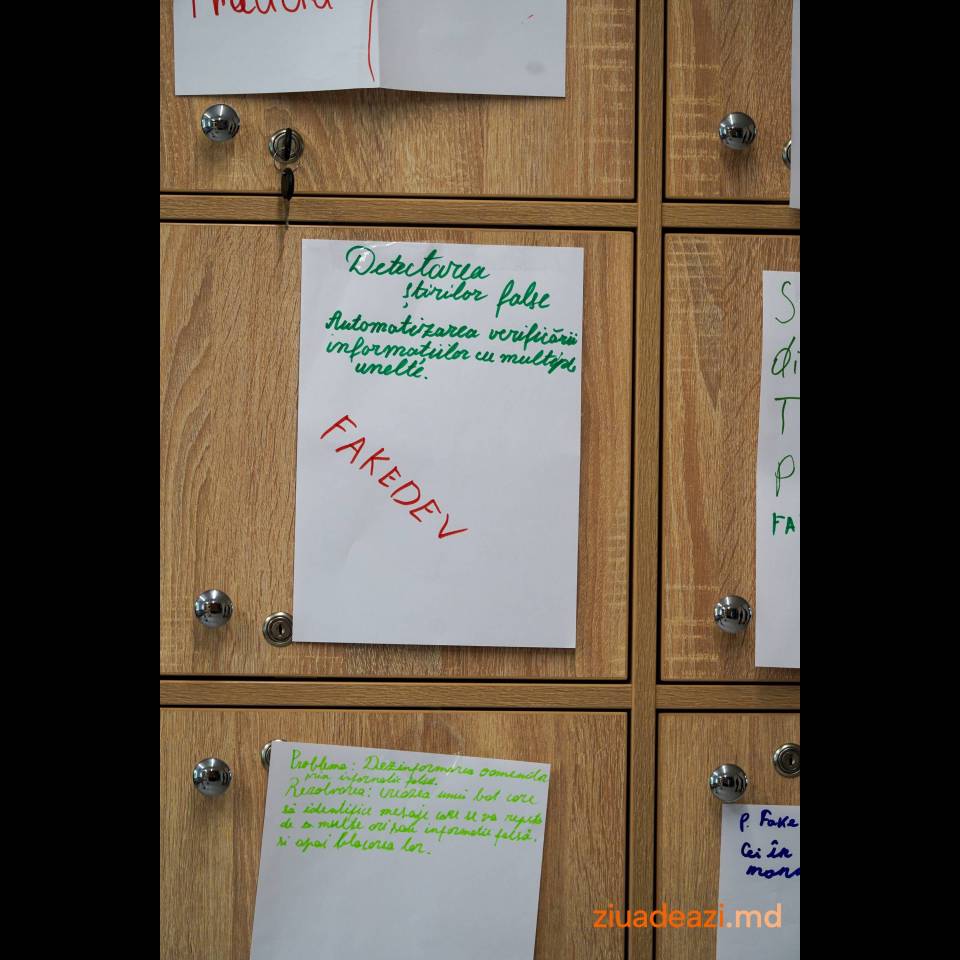 Detectarea
știrilor false
Automatizarea verificării
informațiilor cu multiple
unelte.
FAKEDEV
S
T
P
FA
Problema: Dezinformarea oamenilor
prin informatie falsa.
Rezolvarea: crearea unui bot care
să identifice mesaje care se va repeta
de a multe ori sau informatie falsă.
si apoi blocarea lor.
P. Fake
Cei în
ziuadeazi.md